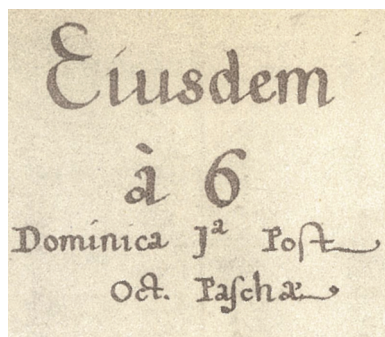 Eiusdem
à 6
Dominica Jª Post
Oct. Paschæ